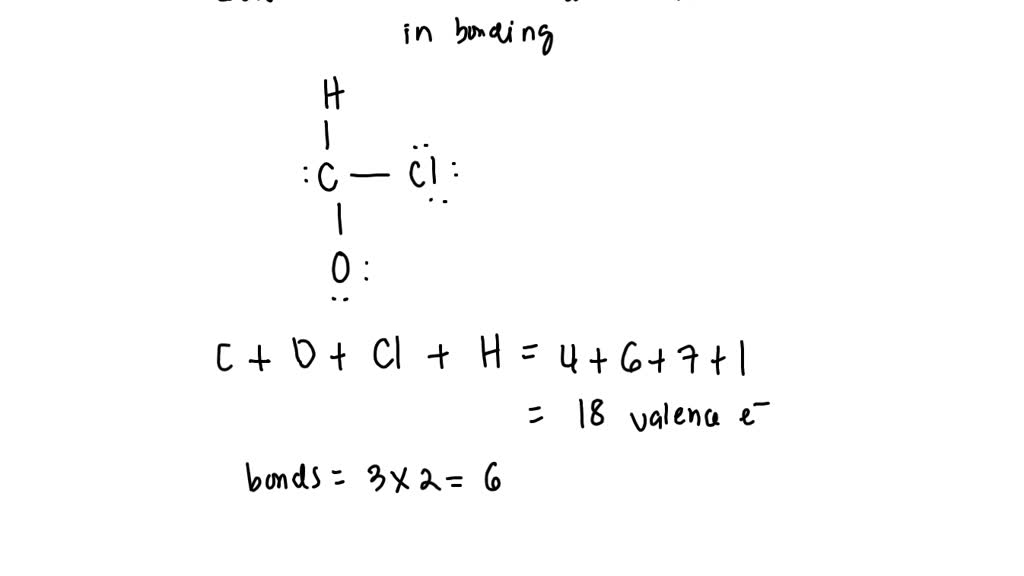 in bonding
H
|
:C — C̤̈l:
|
O̤:
C + O + Cl + H = 4 + 6 + 7 + 1
= 18 valence e⁻
bonds = 3 x 2 = 6